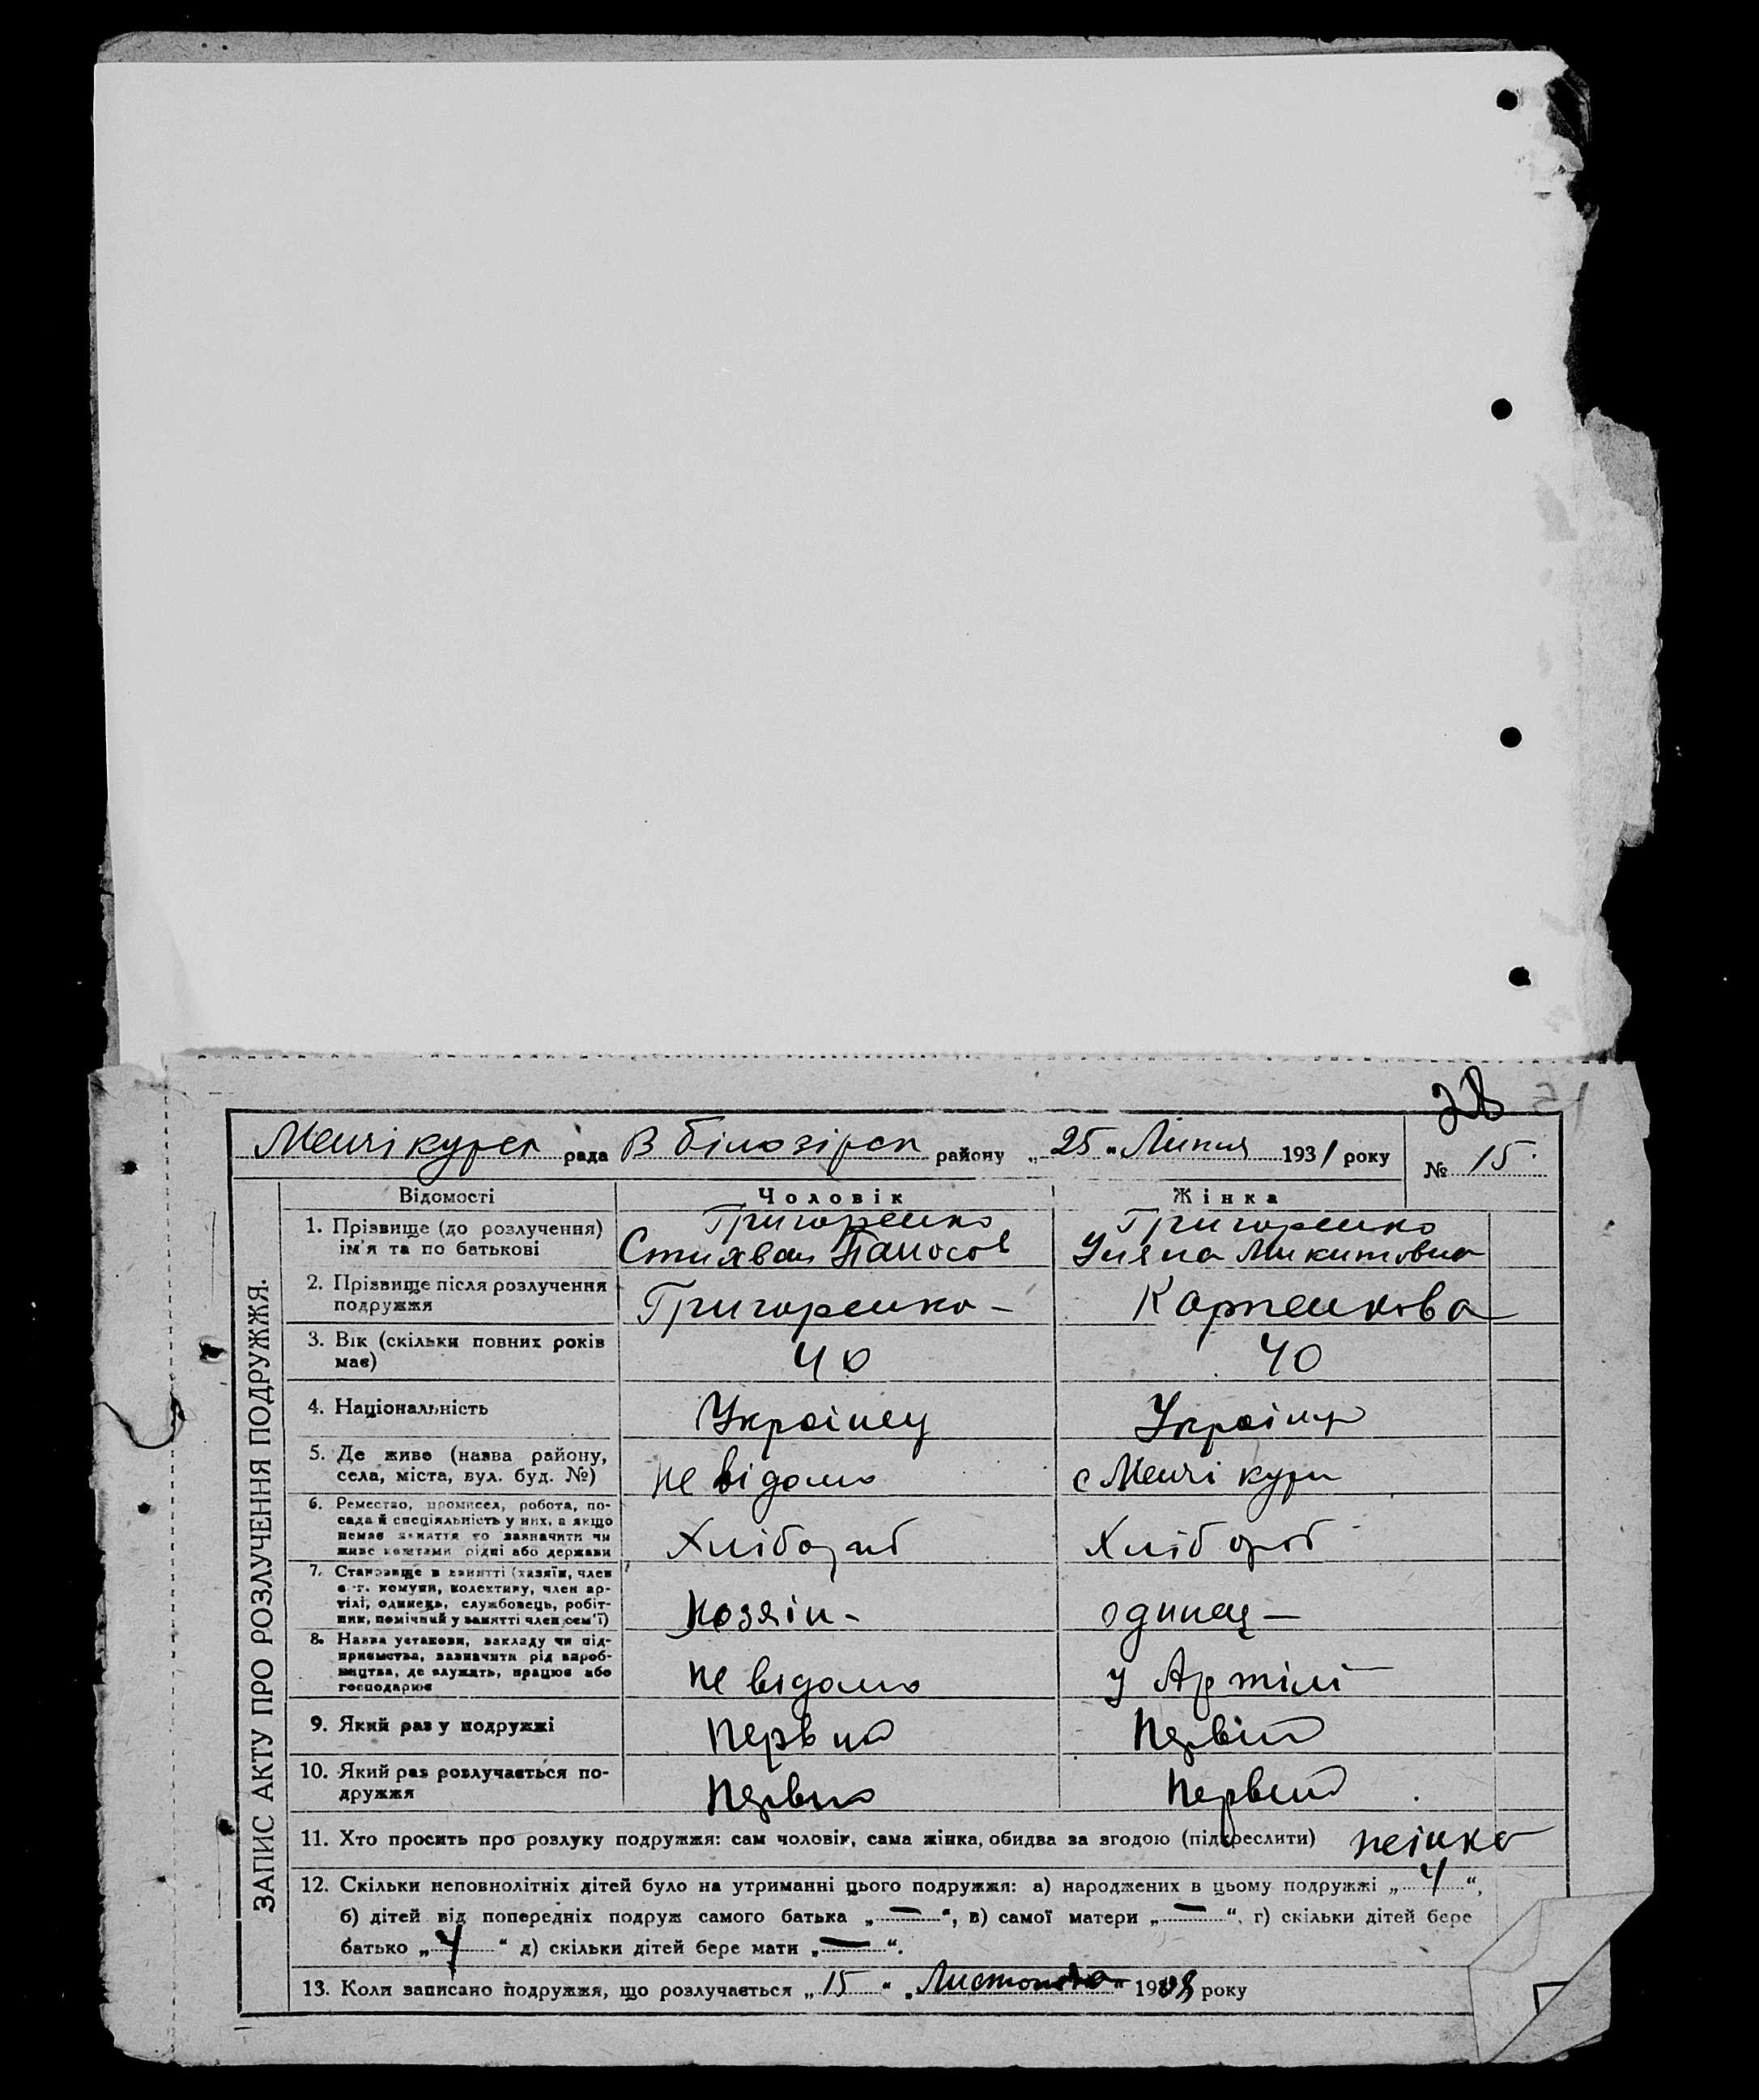 28
Менчікурсп рада В білозірсп району „25" Липня 1931 року № 15
ЗАПИС АКТУ ПРО РОЗЛУЧЕННЯ ПОДРУЖЖЯ.
Відомості Чоловік Жінка
1. Прізвище (до розлучення) Григоренко Григоренко
ім'я та по батькові Стихван Паносов Уляна Микитовна
2. Прізвище після розлучення
подружжя Григоренко - Карпенкова
3. Вік (скільки повних років
має) 40 40
4. Національність Украінец Украінц
5. Де живе (назва району,
села, міста, вул. буд. №) не відомо с Менчі кури
6. Ремество, промисел, робота, по-
сада й спеціяльність у них, а якщо
немає заняття то зазначити чи
живе коштами рідні або держави Хлібороб Хлібороб
7. Становище в занятті (хазяїн, член
с.-г. комуни, колективу, член ар-
тілі, одинець, службовець, робіт-
ник, помічний у занятті член сем'ї) Хозяін - одинец —
8. Назва установи, закладу чи під-
приємства, зазначити рід вироб-
ництва, де служить, працює або
господарює не відомо у Артілі
9. Який раз у подружжі Первий Первій
10. Який раз розлучається по-
дружжя Первий Первий
11. Хто просить про розлуку подружжя: сам чоловік, сама жінка, обидва за згодою (підкреслити) жінка
12. Скільки неповнолітніх дітей було на утриманні цього подружжя: а) народжених в цьому подружжі „4",
б) дітей від попередніх подруж самого батька „—", в) самої матери „—". г) скільки дітей бере
батько „4" д) скільки дітей бере мати „—".
13. Коли записано подружжя, що розлучається „15" „Листопада" 1908 року